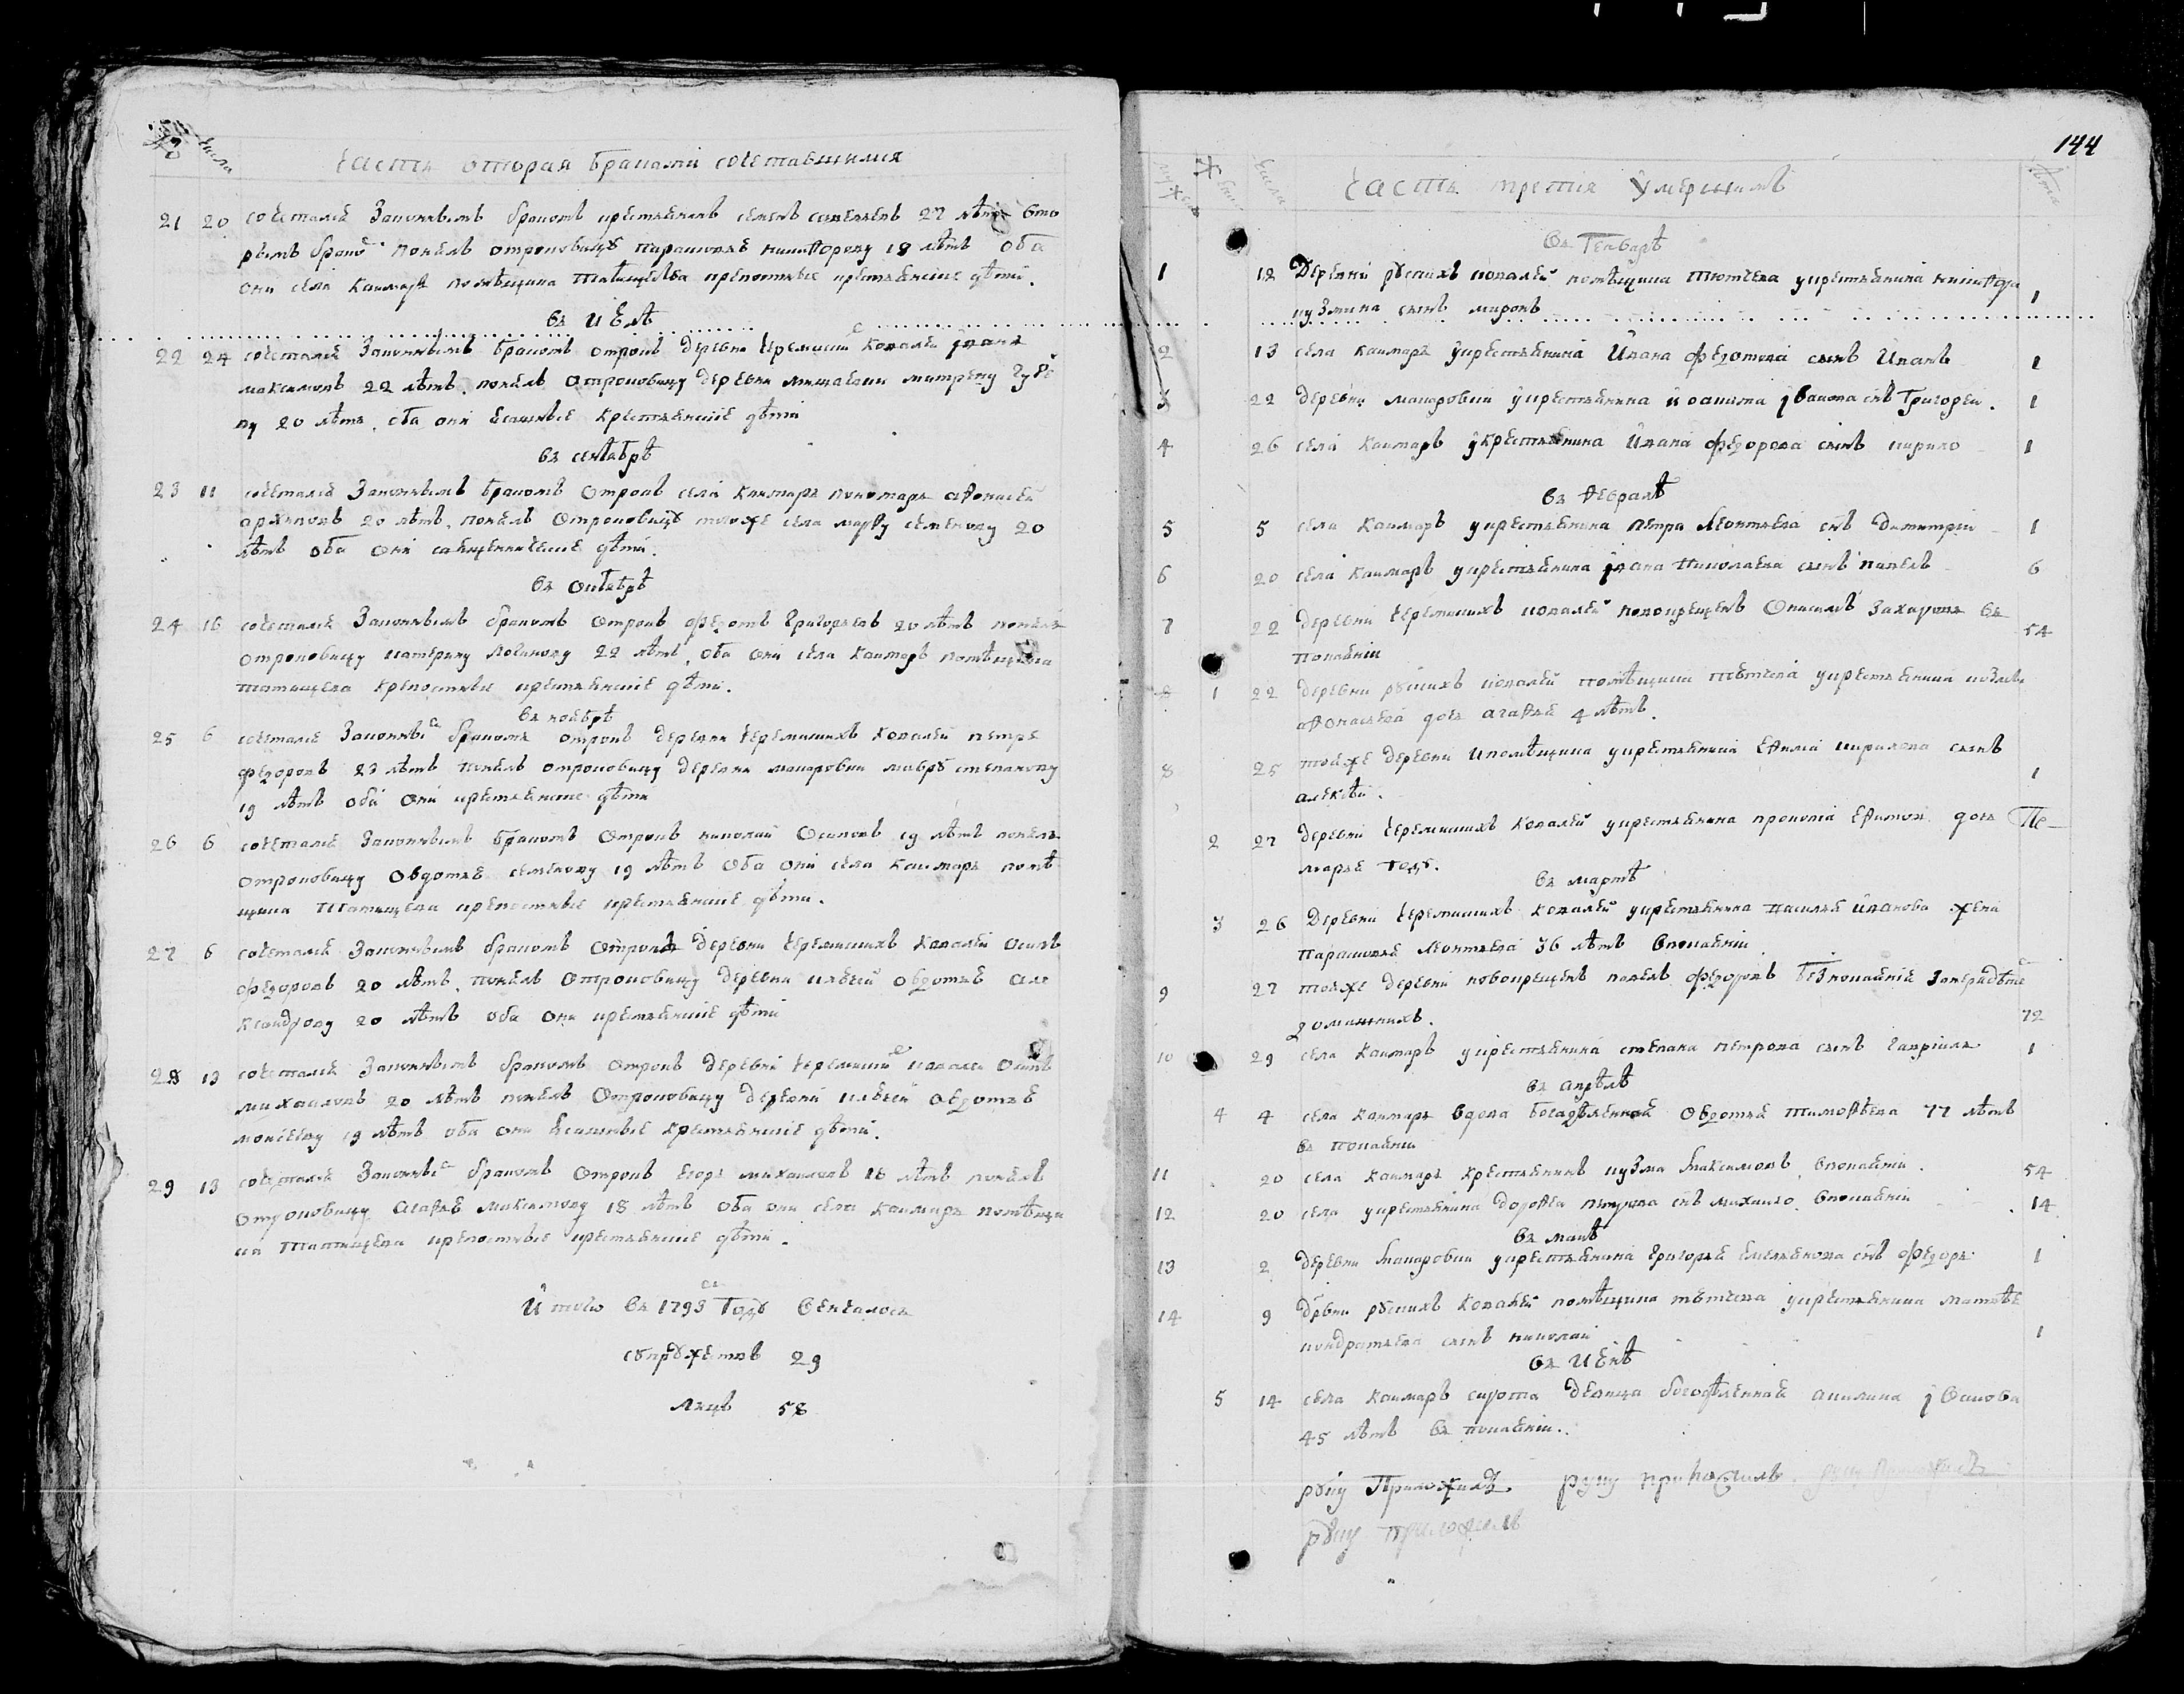 № числа
часть вторая браками сочетавшихся
21 20 сочетался законнымъ бракомъ крестьянинъ семенъ 27 лѣтъ вто
рымъ бракоⷨ понялъ отроковицу парасковью никифорову 18 лѣтъ оба
они села каимаръ помѣщика татищева крепостные крестьянские дѣти.
въ июлѣ
22 24 сочетался законнымъ бракомъ отрокъ деревни черемиски ковали иванъ
максимовъ 22 лѣтъ. понялъ отроковицу деревни матрену
ву 20 лѣтъ, оба они ясашные крестьянские дѣти
въ сентябрѣ
23 11 сочетался законнымъ бракомъ отрокъ села каимаръ пономарь афонасей
20 лѣтъ, понялъ отроковицу тогоже села марфу семенову 20
лѣтъ оба они священнические дѣти.
въ октябрѣ
24 16 сочетался законнымъ бракомъ отрокъ федотъ григорьевъ 20 лѣтъ понялъ
отроковицу катерину логинову 22 лѣтъ, оба они села каимаръ помѣщика
татищева крепостные крестьянские дѣти.
въ ноябрѣ
25 6 сочетался законныⷨ бракомъ отрокъ деревни черемискихъ ковалей петръ
федоровъ 23 лѣтъ понялъ отроковицу деревни макаровки мавру степанову
19 лѣтъ оба они крестьянские дѣти
26 6 сочетался законнымъ бракомъ отрокъ николай осиповъ 19 лѣтъ понялъ
отроковицу овдотью семенову 19 лѣтъ оба они села каимаръ помѣ
щика татищева крепостные крестьянские дѣти.
27 6 сочетался законнымъ бракомъ отрокъ деревни черемискихъ ковалей осипъ
федоровъ 20 лѣтъ, понялъ отроковицу деревни овдотью але
ксандрову 20 лѣтъ оба они крестьянские дѣти
28 13 сочетался законнымъ бракомъ отрокъ деревни черемискиⷯ ковалей осипъ
михайловъ 20 лѣтъ понялъ отроковицу деревни овдотью
моисееву 19 лѣтъ оба они ясашные крестьянские дѣти.
29 13 сочетался законныⷨ бракомъ отрокъ егоръ михайловъ 18 лѣтъ понялъ
отроковицу агафью максимову 18 лѣтъ оба они села каимаръ помѣщи
ка татищева крепостные крестьянские дѣти.
итого въ 1793 году венчалось
супружествъ 29
лицъ 58
144
муж жен числа часть третия умершимъ лѣта
въ генварѣ
1 12 деревни рускихъ ковалей помѣщика тютчева укрестьянина никифора
кузмина сынъ миронъ 1
2 13 села каимаръ укрестьянина ивана федотова сынъ иванъ 1
3 22 деревни макаровки укрестьянина иоакима иванова снъ григорей. 1
4 26 села каимаръ укрестьянина ивана федорова сынъ кирило 1
въ февралѣ
5 5 села каимаръ укрестьянина петра леонтьева снъ димитрий 1
6 20 села каимаръ укрестьянина ивана николаева сынъ павелъ 6
7 22 деревни черемискихъ ковалей новокрещенъ захаровъ въ
покаянии 54
8 1 22 деревни рускихъ ковалей помѣщика тютчева укрестьянина
афонасьева дочь агафья 4 лѣтъ.
8 25 тойже деревни ипомѣщика укрестьянина ефима кирилова сынъ
алексѣй. 1
2 27 деревни черемискихъ ковалей укрестьянина прокопия ефимова дочь
марья году.
въ мартѣ
3 26 деревни черемискихъ ковалей укрестьянина василья иванова жена
парасковья леонтьева 36 лѣтъ впокаянии
9 27 тойже деревни новокрещенъ павелъ федоровъ безпокаяние
домашнихъ. 72
10 29 села каимаръ укрестьянина степана петрова сынъ гаврила 1
въ апрѣлѣ
4 4 села каимаръ вдова богадѣленная овдотья тимофѣева 77 лѣтъ
въ покаянии
11 20 села каимаръ крестьянинъ кузма максимовъ впокаянии. 54
12 20 села укрестьянина дорофея петрова снъ михайло впокаянии 14
въ маиѣ
13 2 деревни макаровки укрестьянина григорья емельянова снъ федоръ 1
14 9 дрвни рускихъ ковалей помѣщика тютчева укрестьянина матвѣя
кондратьева сынъ николай 1
въ июнѣ
5 14 села каимаръ сирота девица богадѣленная акилина иванова
45 лѣтъ въ покаянии.
руку приложилъ руку приложилъ руку приложилъ
руку приложилъ